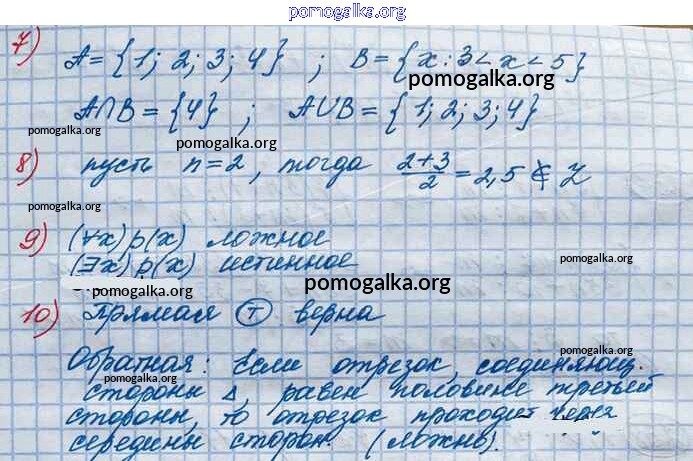 pomogalka.org
7) A = {1; 2; 3; 4} ; B = {x : 3 < x < 5}
pomogalka.org
A∩B = {4} ; A∪B = {1; 2; 3; 4}
pomogalka.org
pomogalka.org
8) пусть n=2, тогда (2+3)/2 = 2,5 ∉ Z
pomogalka.org
9) (∀x) p(x) ложное
(∃x) p(x) истинное
pomogalka.org
pomogalka.org
pomogalka.org
10) Прямая Т верна
pomogalka.org
Обратная: Если отрезок, соединяющ.
pomogalka.org
стороны Δ, равен половине третьей
стороны, то отрезок проходит через
середины сторон. (ложно).